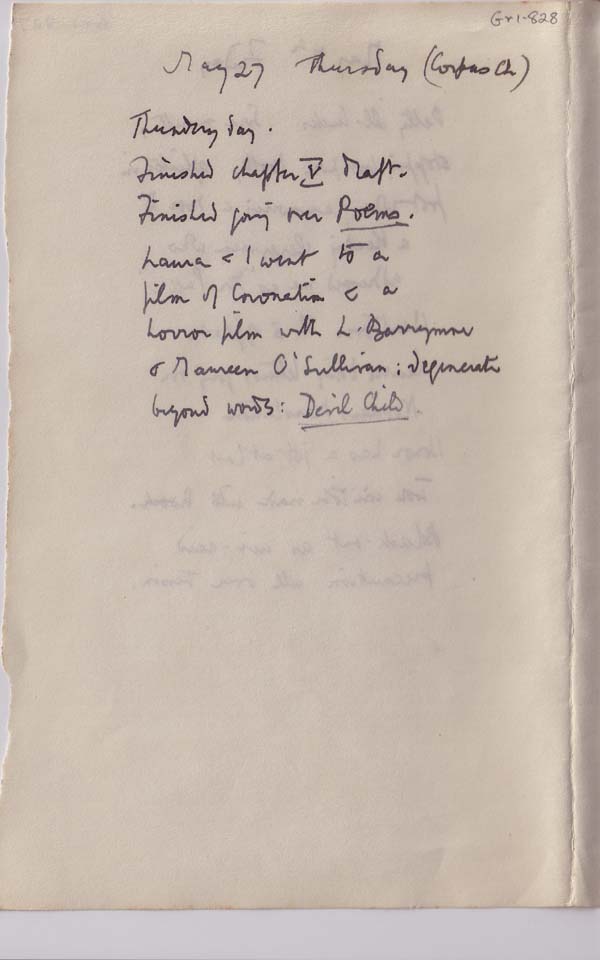 Gr1-828
May 27 Thursday (Corpus Ch)
Thundery day.
Finished chapter V draft.
Finished going over Poems.
Laura & I went to a
film of Coronation & a
horror film with L. Barrymore
& Maureen O'Sullivan; degenerate
beyond words: Devil Child.